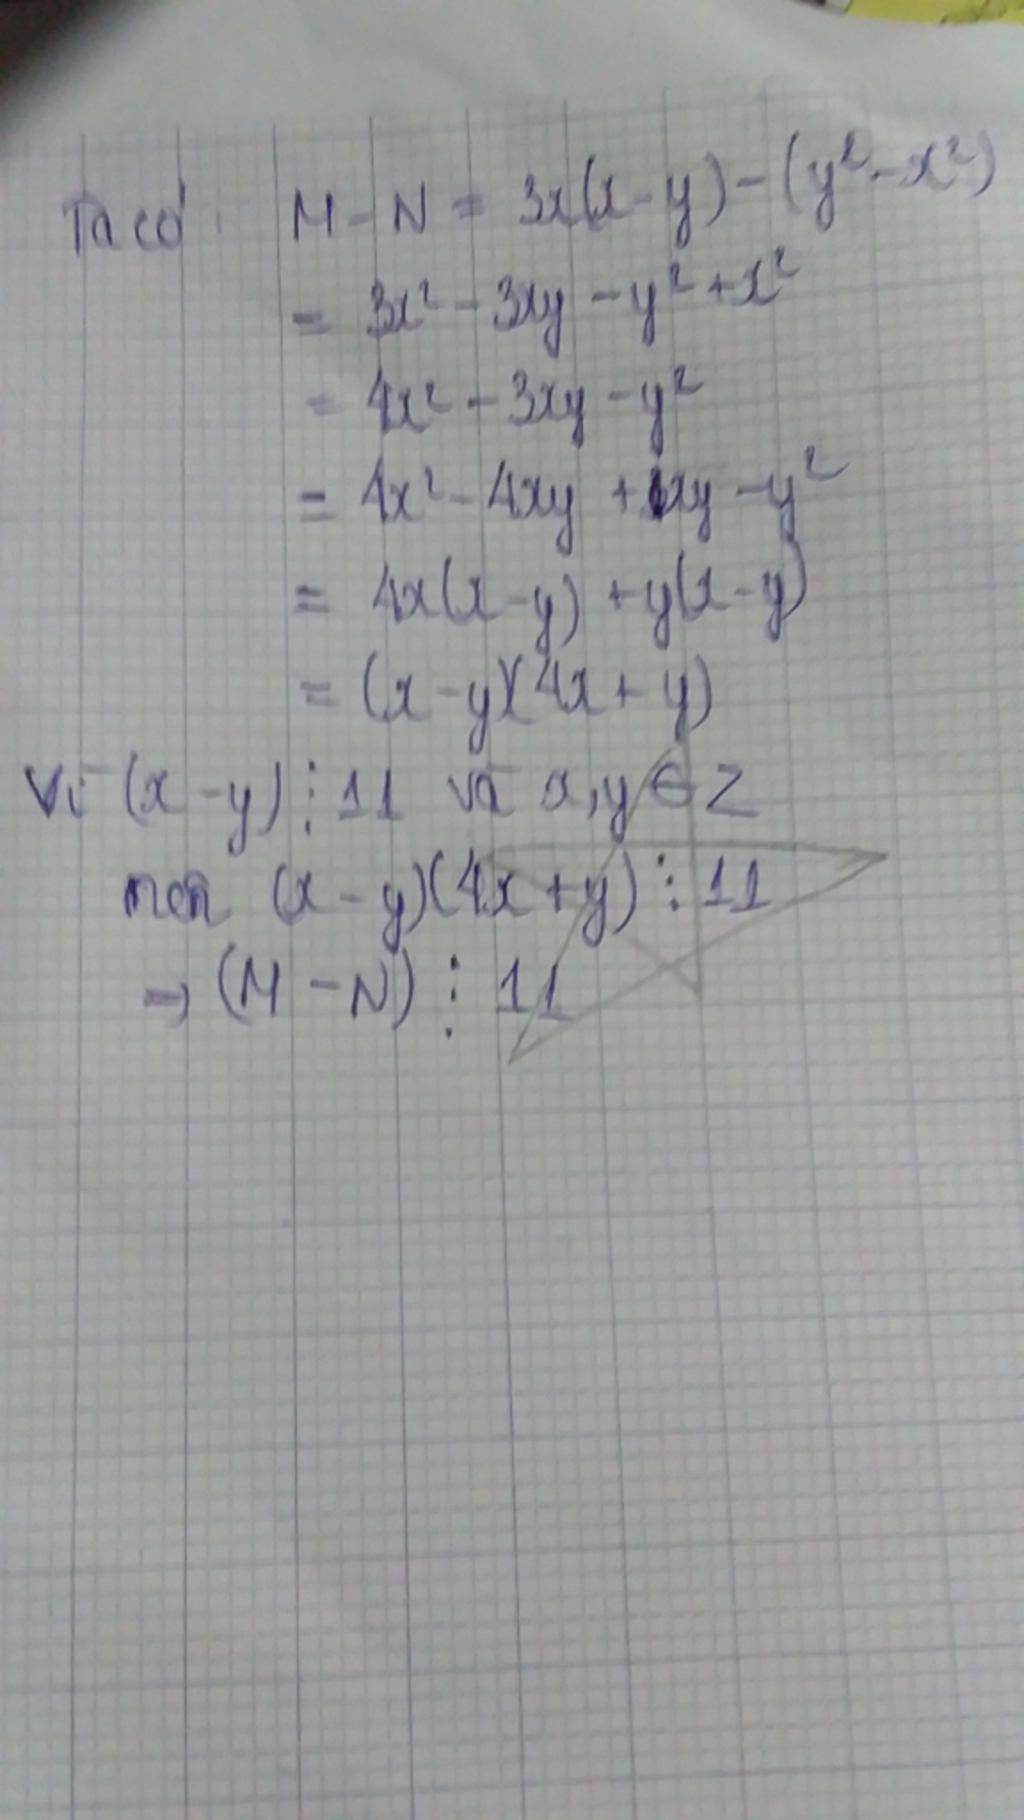 Ta có: M - N = 3x(x - y) - (y² - x²)
= 3x² - 3xy - y² + x²
= 4x² - 3xy - y²
= 4x² - 4xy + 1xy - y²
= 4x(x - y) + y(x - y)
= (x - y)(4x + y)
Vì (x - y) ⋮ 11 và x, y ∈ Z
nên (x - y)(4x + y) ⋮ 11
⇒ (M - N) ⋮ 11